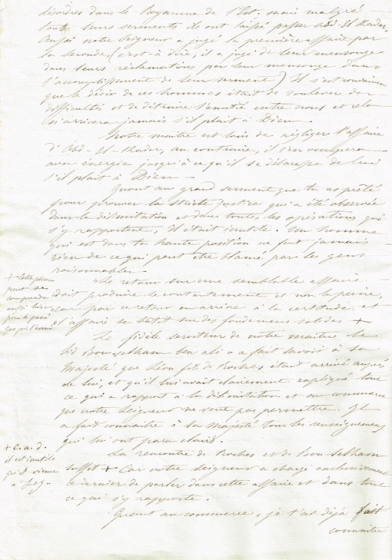 dans le Royaume de l'Est, mais malgré
tous leurs serments ils ont laissé passer
notre Seigneur a jugé la première affaire par
la seconde (c'est à dire il a jugé de leur mensonge
dans leurs réclamations par leur mensonge dans
l'accomplissement de leur serment) Il est
que le désir de ces hommes était de soulever des
difficultés et de détruire l'amitié entre nous et cela
n'arrivera jamais s'il plaît à Dieu
Notre maître est loin de négliger l'affaire
d'Abd-El-Kader, au contraire, il s'en occupera
avec énergie jusqu'à ce qu'il se débarrasse de lui
s'il plaît à Dieu
Quant au grand serment que tu as prêté
pour prouver la stricte justice qui a été observée
dans la délimitation et dans toutes les opérations qui
s'y rapportent, il était inutile. Un homme
qui est dans ta haute position ne fait jamais
rien de ce qui peut être blâmé par les gens
raisonnables
Le retour sur une semblable affaire
doit produire le contentement et non la peine,
car par ce retour on arrive à la certitude et
l'affaire se bâtit sur des fondements solides +
+ Cette phrase
peut se
aussi bien
pour
Le fidèle serviteur de notre maître le
Sid Bousselham ben ali a fait savoir à Sa
Majesté que Léon fils de Roches était arrivé auprès
de lui, et qu'il lui avait clairement expliqué tout
ce qui a rapport à la délimitation et au commerce
que notre Seigneur ne veut pas permettre. Il
a fait connaître à Sa Majesté tous les renseignements
qui lui ont paru clairs.
La rencontre de Roches et de Bousselham
suffit + Car notre Seigneur a chargé
ce dernier de parler dans cette affaire et dans tout
ce qui s'y rapporte.
+ C. a. d.
il est inutile
qu'il vienne
à Fez
Quant au commerce, je t'ai déjà fait
connaître